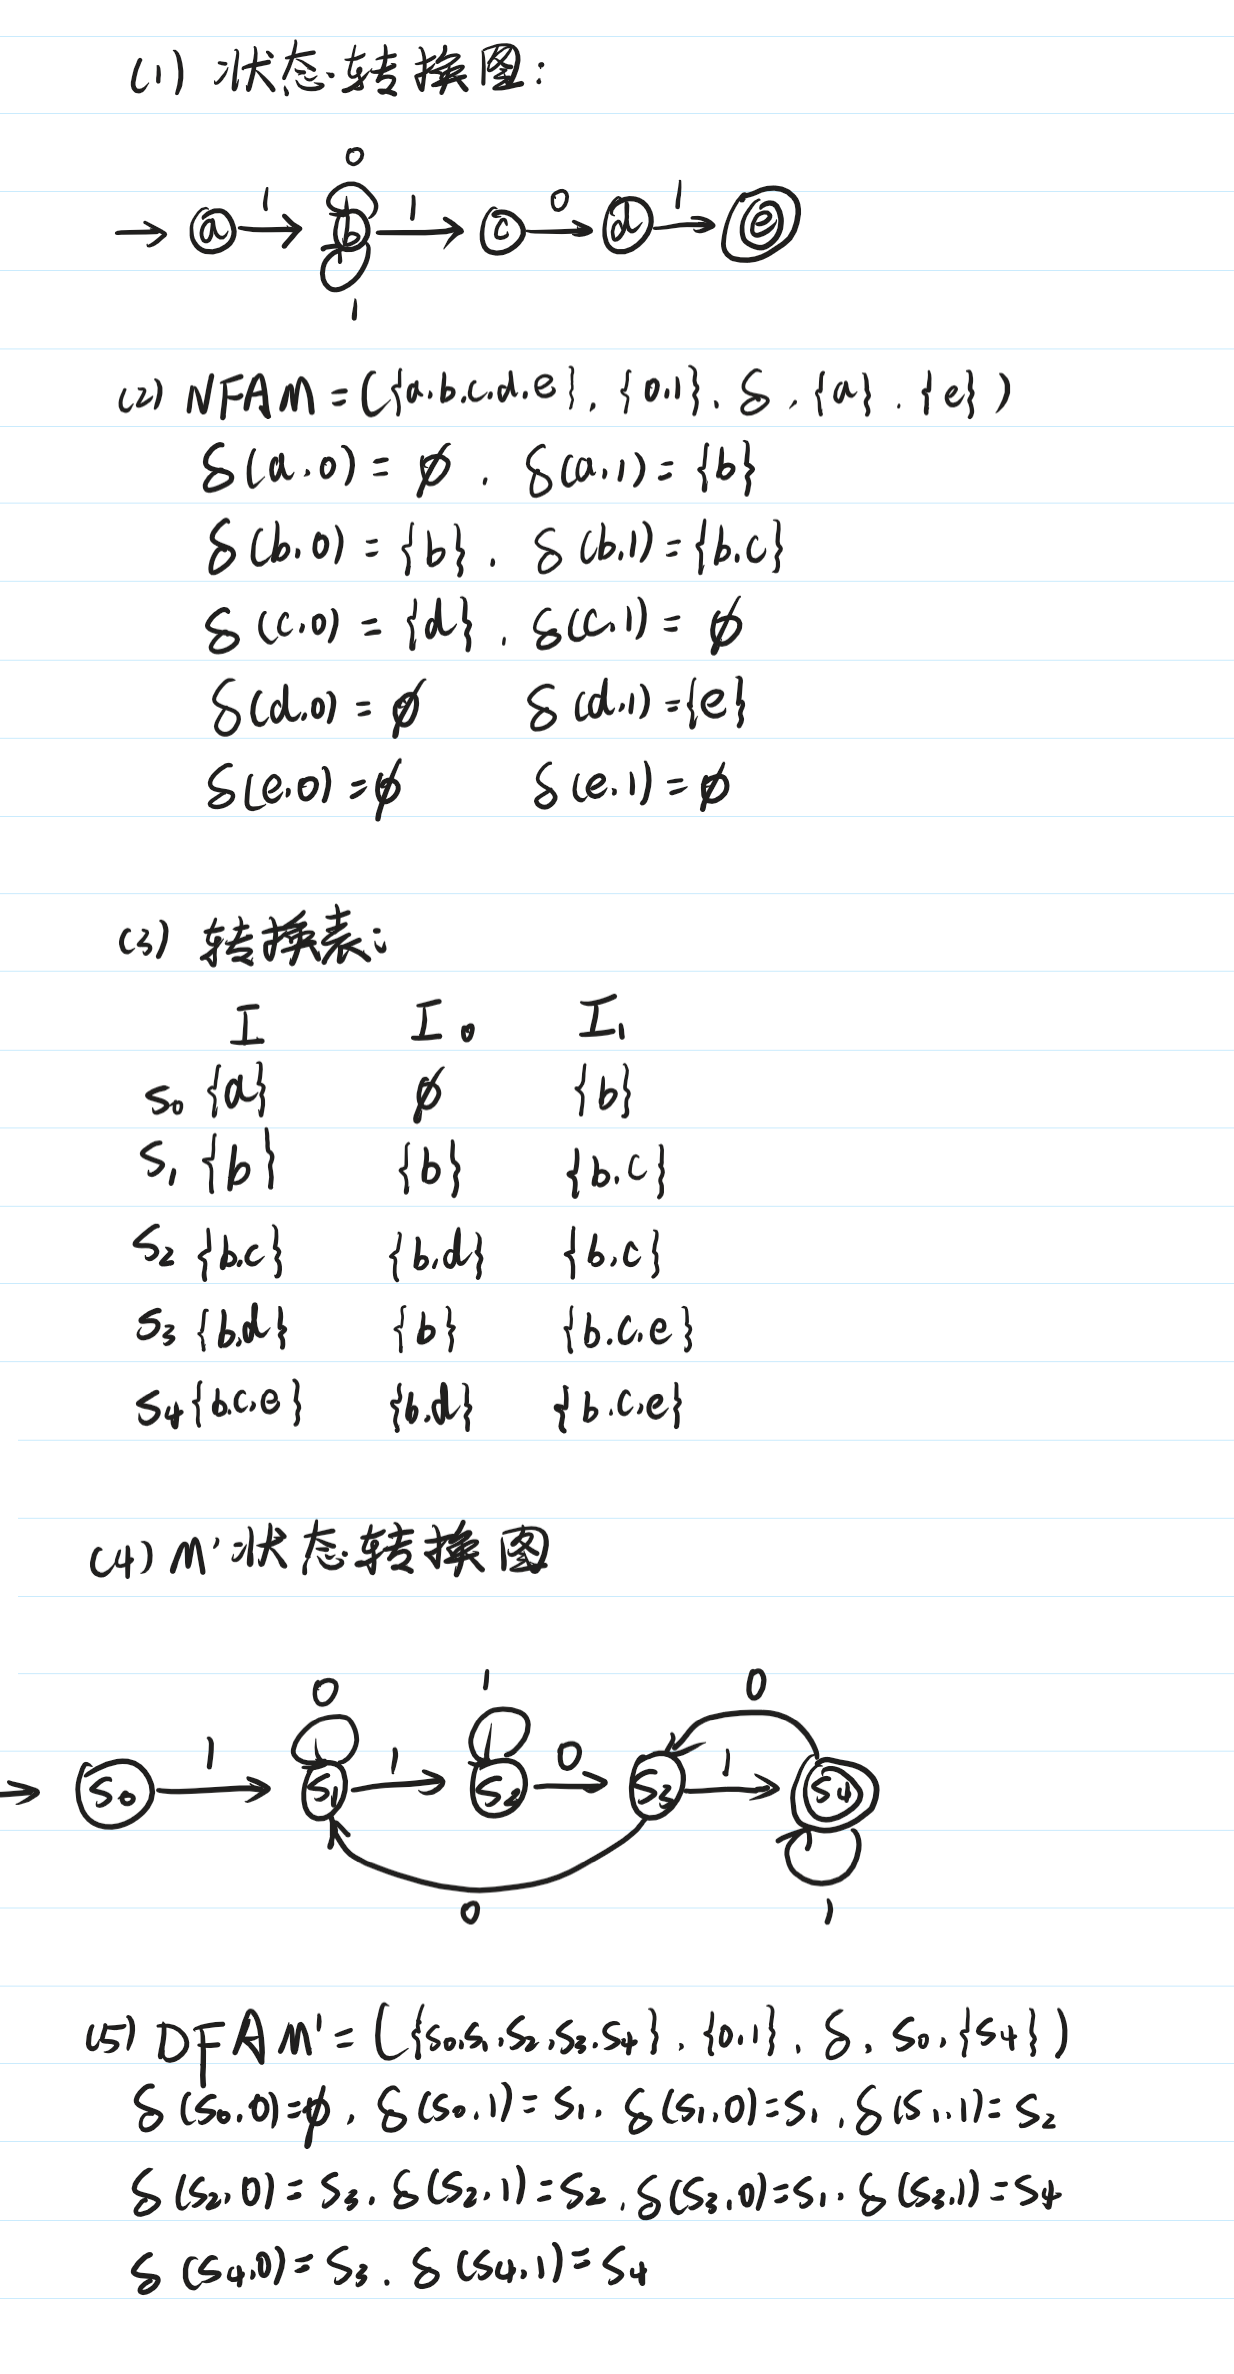 (1) 状态转换图:
0
1 1 0 1
a b c d e
1
(2) NFAM = ({a.b.c.d.e}, {0,1}, δ, {a}, {e})
δ(a,0) = ∅, δ(a,1) = {b}
δ(b,0) = {b}, δ(b,1) = {b.c}
δ(c,0) = {d}, δ(c,1) = ∅
δ(d,0) = ∅ δ(d,1) = {e}
δ(e,0) = ∅ δ(e,1) = ∅
(3) 转换表:
I I₀ I₁
S₀ {a} ∅ {b}
S₁ {b} {b} {b.c}
S₂ {b.c} {b.d} {b,c}
S₃ {b.d} {b} {b.c.e}
S₄ {b.c.e} {b.d} {b.c.e}
(4) M' 状态转换图
0 1 0
1 1 0 1
S₀ S₁ S₂ S₃ S₄
0 1
(5) DFAM' = ({S₀,S₁,S₂,S₃,S₄}, {0,1}, δ, S₀, {S₄})
δ(S₀,0)=∅, δ(S₀,1)=S₁, δ(S₁,0)=S₁, δ(S₁,1)=S₂
δ(S₂,0)=S₃, δ(S₂,1)=S₂, δ(S₃,0)=S₁, δ(S₃,1)=S₄
δ(S₄,0)=S₃, δ(S₄,1)=S₄